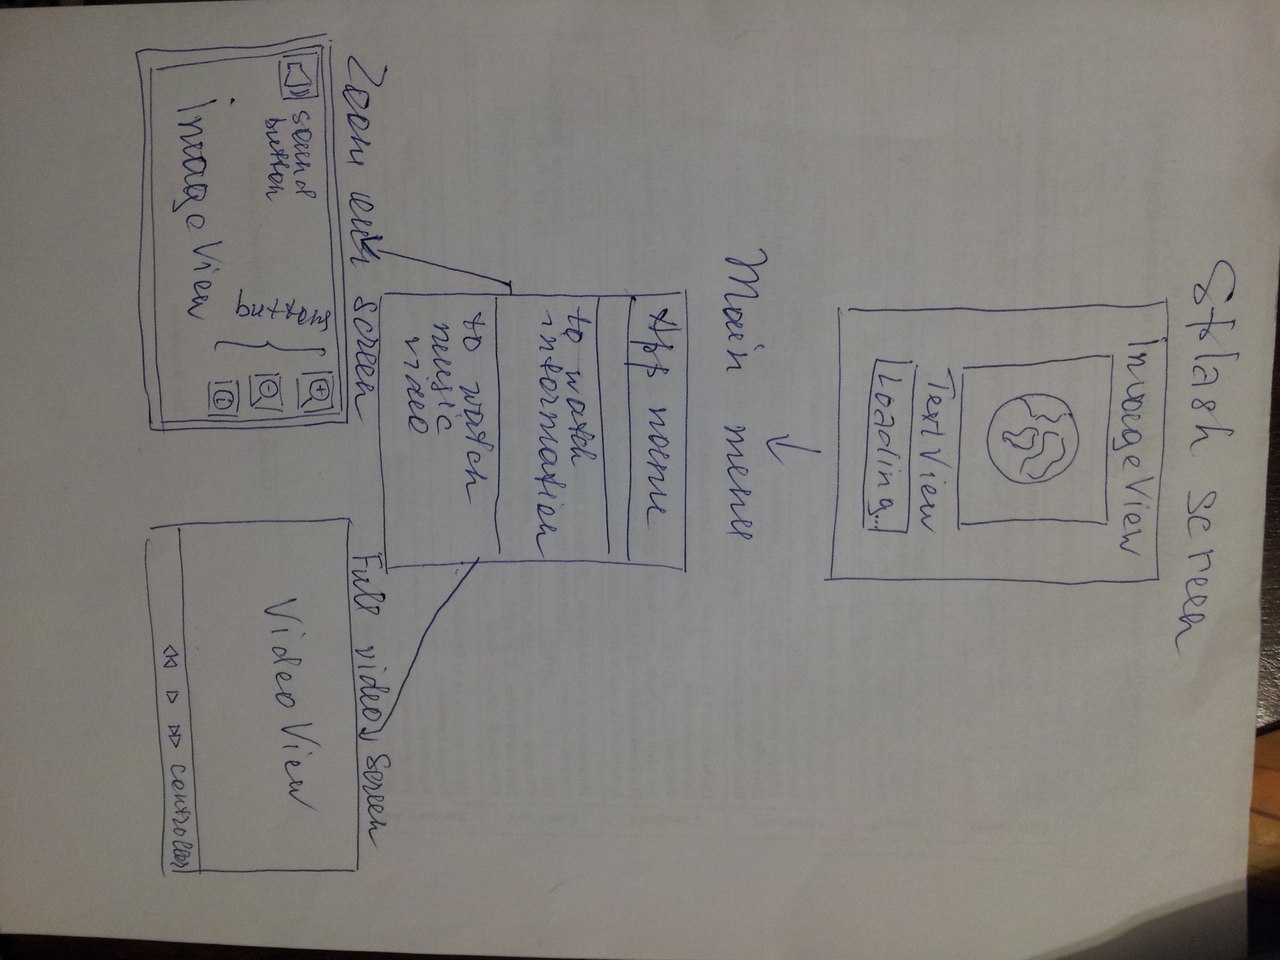 Splash screen
ImageView
TextView
Loading...
Main menu
App name
to watch
information
to watch
music
video
Zoom screen
sound
button
buttons
ImageView
Full video screen
VideoView
controller